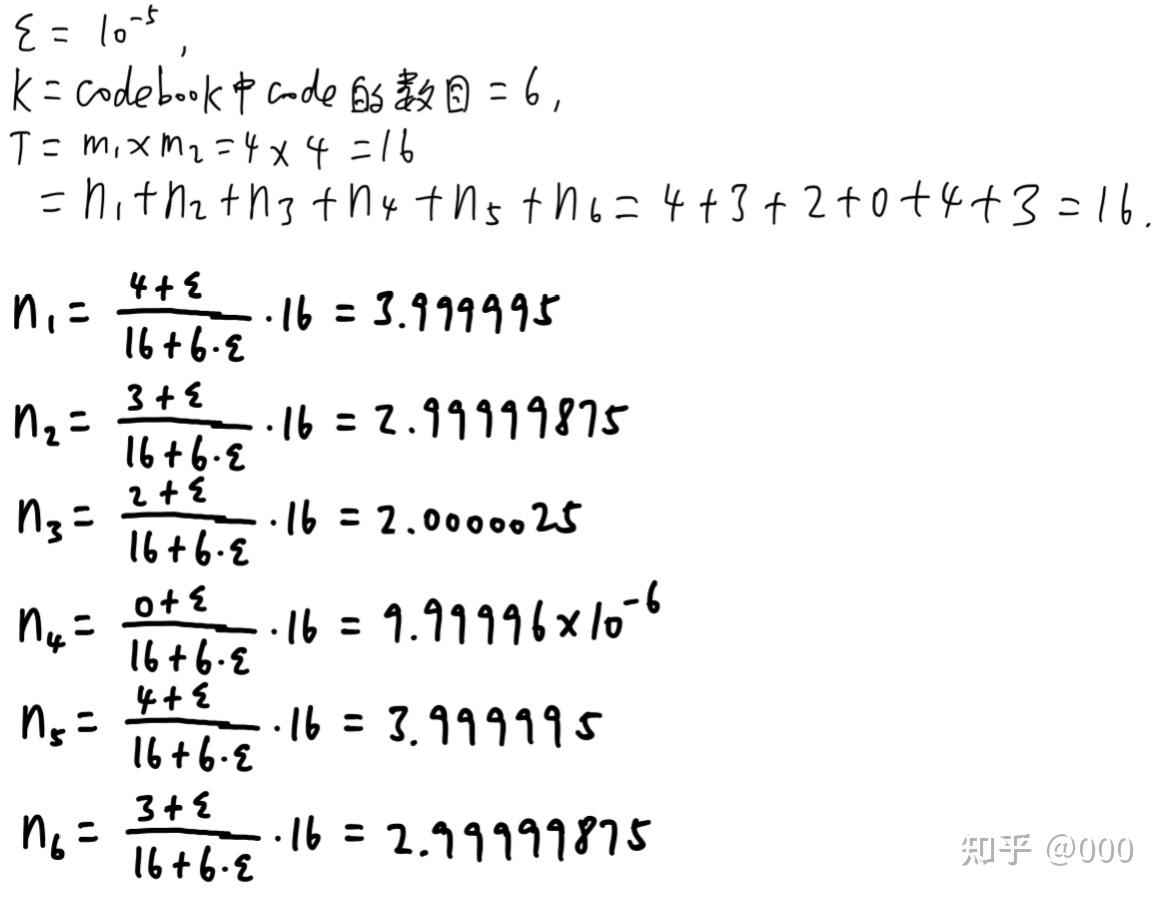 ε = 10⁻⁵,
K = codebook中code的数目 = 6,
T = m₁ × m₂ = 4 × 4 = 16
= n₁ + n₂ + n₃ + n₄ + n₅ + n₆ = 4 + 3 + 2 + 0 + 4 + 3 = 16.
n₁ = (4 + ε)/(16 + 6·ε) · 16 = 3.999995
n₂ = (3 + ε)/(16 + 6·ε) · 16 = 2.99999875
n₃ = (2 + ε)/(16 + 6·ε) · 16 = 2.0000025
n₄ = (0 + ε)/(16 + 6·ε) · 16 = 9.99996 × 10⁻⁶
n₅ = (4 + ε)/(16 + 6·ε) · 16 = 3.999995
n₆ = (3 + ε)/(16 + 6·ε) · 16 = 2.99999875
知乎 @000